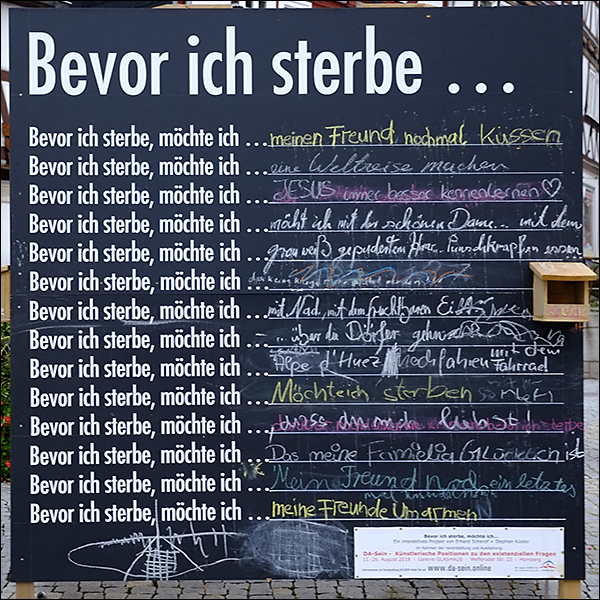 Bevor ich sterbe ...
Bevor ich sterbe, möchte ich ... meinen Freund nochmal küssen
Bevor ich sterbe, möchte ich ... eine Weltreise machen
Bevor ich sterbe, möchte ich ... JESUS immer besser kennenlernen ♡
Bevor ich sterbe, möchte ich ... möcht ich mit der schönen Dame... mit dem
Bevor ich sterbe, möchte ich ... grau weiß gepuderten Haar... Punschkrapfen essen
Bevor ich sterbe, möchte ich ...
Bevor ich sterbe, möchte ich ... mit Nad, mit dem fruchtbaren
Bevor ich sterbe, möchte ich ... ... über die Dörfer gehn
Bevor ich sterbe, möchte ich ... Alpe d'Huez hochfahren mit dem Fahrrad
Bevor ich sterbe, möchte ich ... Möchte ich sterben
Bevor ich sterbe, möchte ich ... dass du mich liebst!
Bevor ich sterbe, möchte ich ... Das meine Familia Glücklich ist
Bevor ich sterbe, möchte ich ... Meine Freund noch ein letztes
mal
Bevor ich sterbe, möchte ich ... meine Freunde Umarmen
Bevor ich sterbe, möchte ich...
Ein interaktives Projekt von Erhard Scherpf + Stephan Küster
Im Rahmen der Veranstaltung und Ausstellung:
DA-Sein - Künstlerische Positionen zu den existenziellen Fragen
11.-26. August 2018 - Galerie GLASHAUS - Melsunger Str. 23 - Homberg
www.da-sein.online